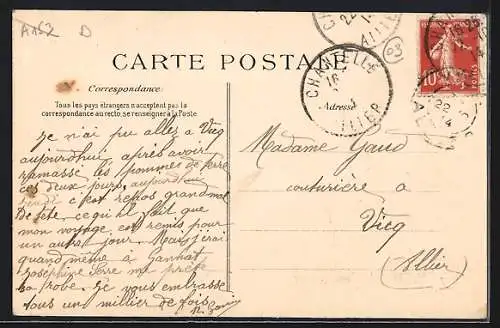 A152 D
03
CARTE POSTALE
Correspondance
Tous les pays étrangers n'acceptent pas la
correspondance au recto, se renseigner à la Poste
Adresse
CHANTELLE
16
ALLIER
22
14
10
Je n'ai pu aller à Vicq
aujourd'hui après avoir
ramassé les pommes de terre
ces deux jours, aujourd'hui
lundi c'est repos grand mal
De tête, ce qu'il fait que
mon voyage est remis pour
un autre jour. Mais j'irai
quand même à Gannat
Joséphine Serre me prête
sa robe. Je vous embrasse
tous un millier de fois
Madame Gaud
couturière à
Vicq
(Allier)